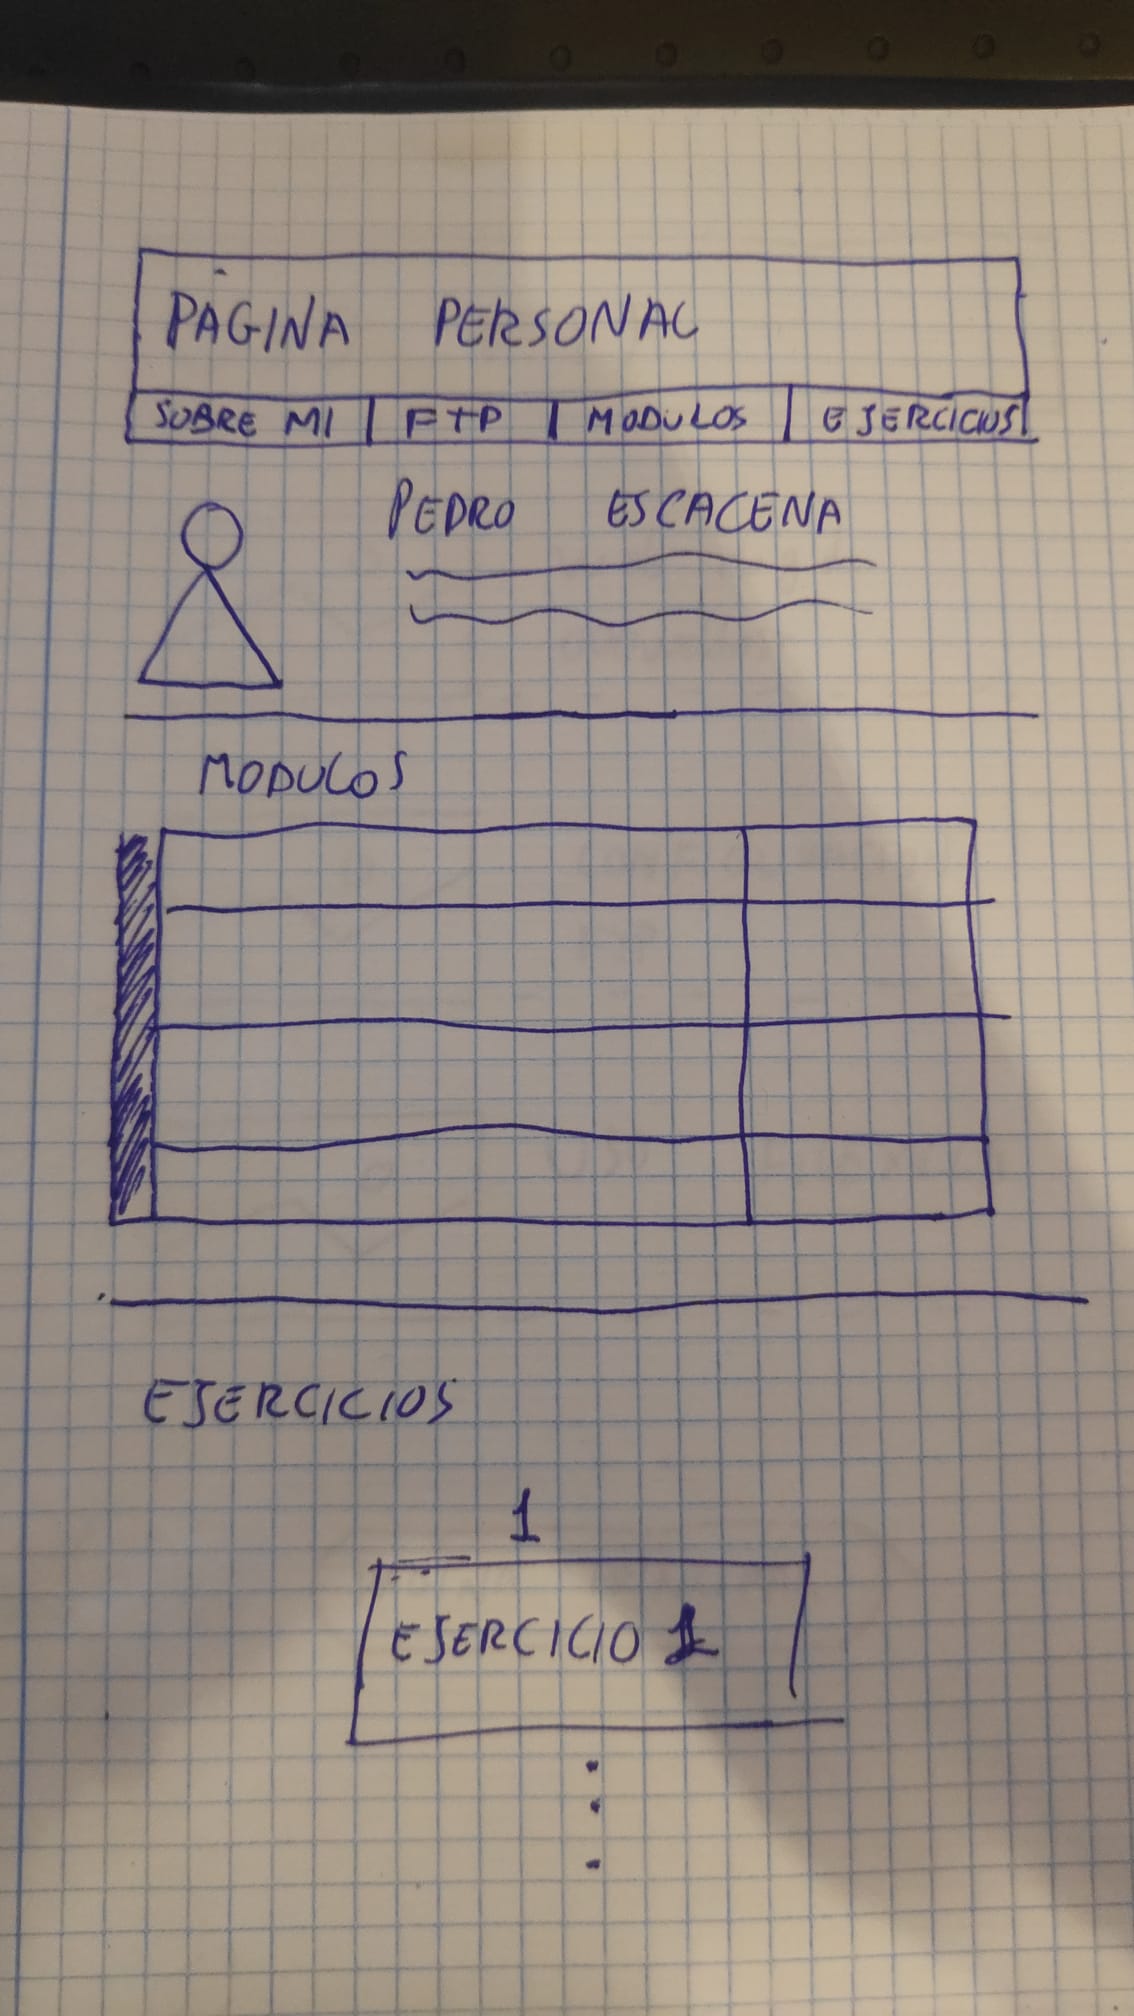 PAGINA PERSONAL
SOBRE MI | FTP | MODULOS | EJERCICIOS
PEDRO ESCACENA
MODULOS
EJERCICIOS
1
EJERCICIO 1